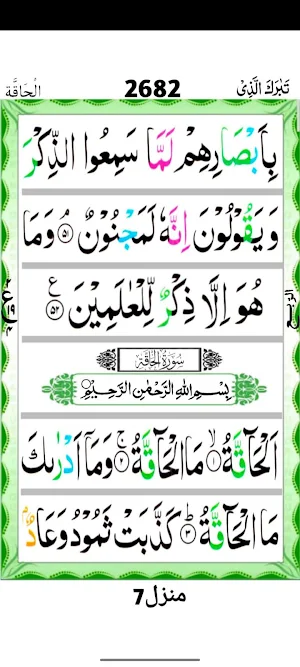 تَبٰرَكَ الَّذِیْ 2682 اَلْحَاقَّة
بِاَبْصَارِهِمْ لَمَّا سَمِعُوا الذِّكْرَ
وَیَقُوْلُوْنَ اِنَّهٗ لَمَجْنُوْنٌۘ ۝۵۱ وَمَا
هُوَ اِلَّا ذِكْرٌ لِّلْعٰلَمِیْنَ ۝۵۲ ع
سُوْرَةُ الْحَاقَّة
بِسْمِ اللهِ الرَّحْمٰنِ الرَّحِیْمِ
اَلْحَآقَّةُ ۝۱ۙ مَا الْحَآقَّةُ ۝۲ۚ وَمَاۤ اَدْرٰىكَ
مَا الْحَآقَّةُ ۝۳ؕ كَذَّبَتْ ثَمُوْدُ وَعَادٌۢ
منزل7